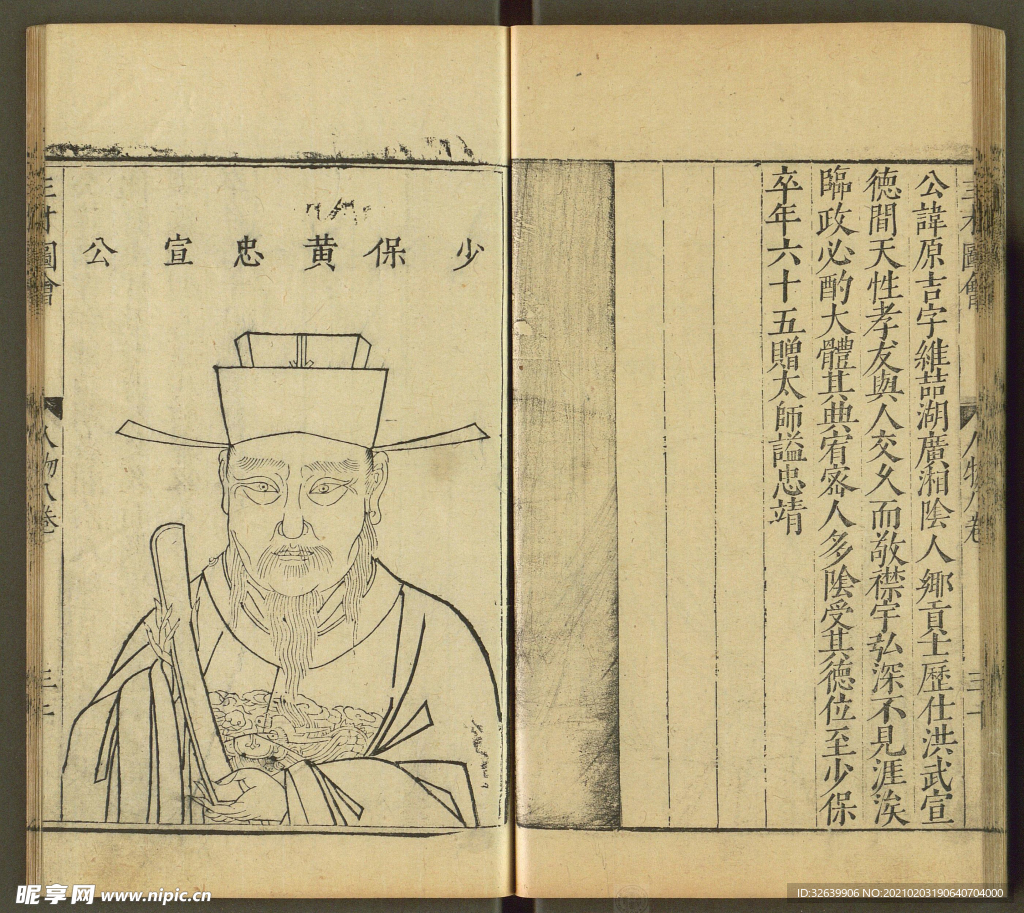 三才圖會
人物八卷
三十
公諱原吉字維喆湖廣湘陰人鄉貢士歷仕洪武宣
德間天性孝友與人交久而敬襟宇弘深不見涯涘
臨政必酌大體其典宥密人多陰受其德位至少保
卒年六十五贈太師謚忠靖
少保黄忠宣公
圖會
人物八卷
昵享网 www.nipic.cn
ID:32639906 NO:20210203190640704000